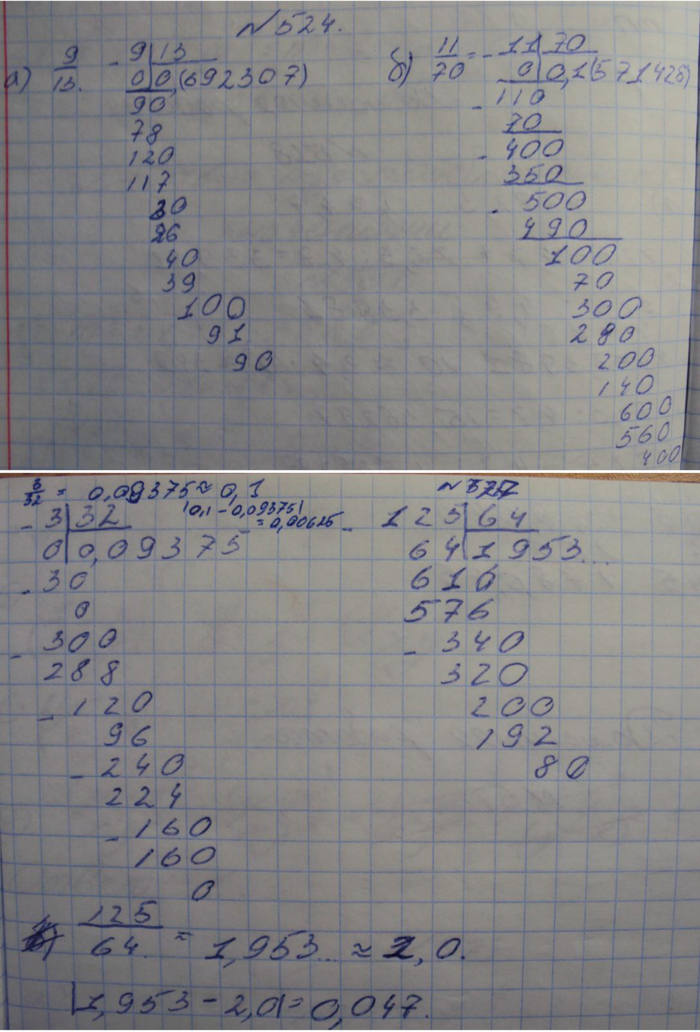 №524.
а) 9/13. - 9 | 13
0 | 0,(692307)
90
78
120
117
30
26
40
39
100
91
90
б) 11/70 = - 11 | 70
0 | 0,1(571428)
- 110
70
- 400
350
- 500
490
100
70
300
280
200
140
600
560
400
3/32 = 0,09375 ≈ 0,1
|0,1 - 0,09375| = 0,00625
- 3 | 32
0 | 0,09375
- 30
0
- 300
288
- 120
96
- 240
224
- 160
160
0
- 125 | 64
64 | 1,953...
616
576
- 340
320
200
192
80
125/64. = 1,953... ≈ 2,0.
|1,953 - 2,0| = 0,047.